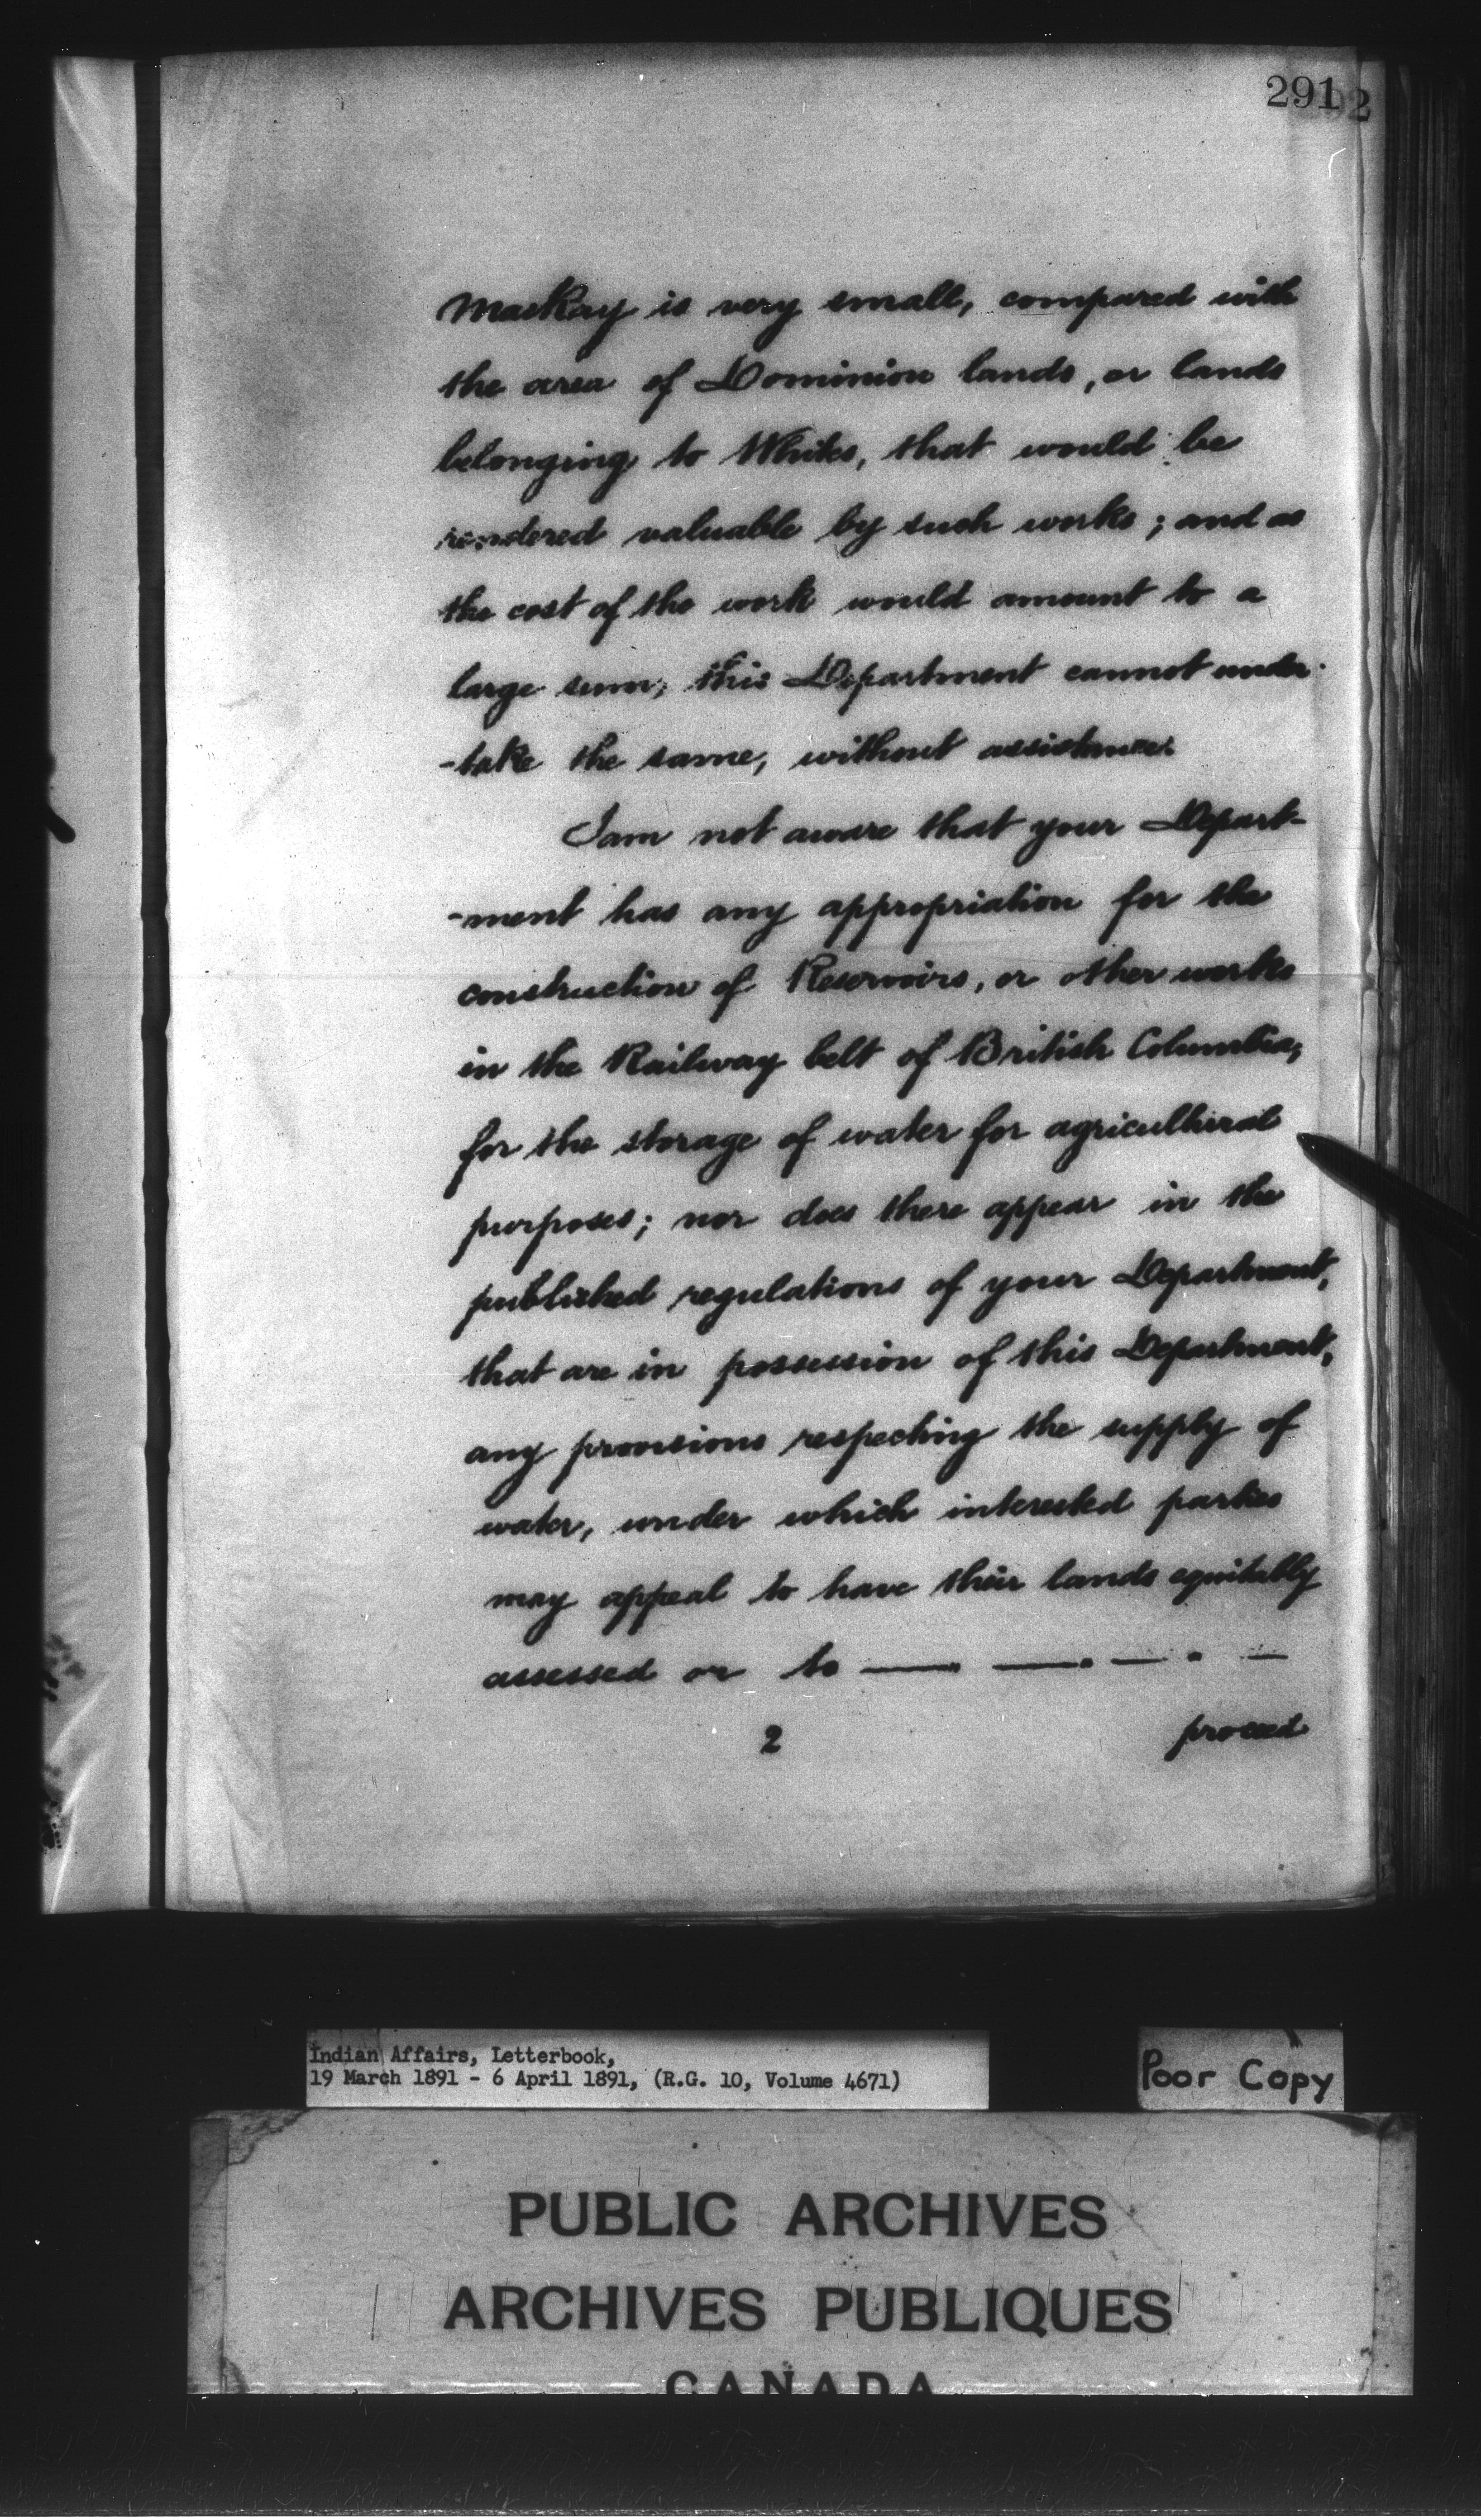 291
2
MacKay is very small, compared with
the area of Dominion lands, or lands
belonging to Whites, that would be
rendered valuable by such works; and as
the cost of the work would amount to a
large sum, this Department cannot under-
-take the same, without assistance.
I am not aware that your Depart-
-ment has any appropriation for the
construction of Reservoirs, or other works
in the Railway belt of British Columbia,
for the storage of water for agricultural
purposes; nor does there appear in the
published regulations of your Department,
that are in possession of this Department,
any provisions respecting the supply of
water, under which interested parties
may appeal to have their lands equitably
assessed or to — — — - —
2 proceed
Indian Affairs, Letterbook,
19 March 1891 - 6 April 1891, (R.G. 10, Volume 4671)
Poor Copy
PUBLIC ARCHIVES
ARCHIVES PUBLIQUES
CANADA